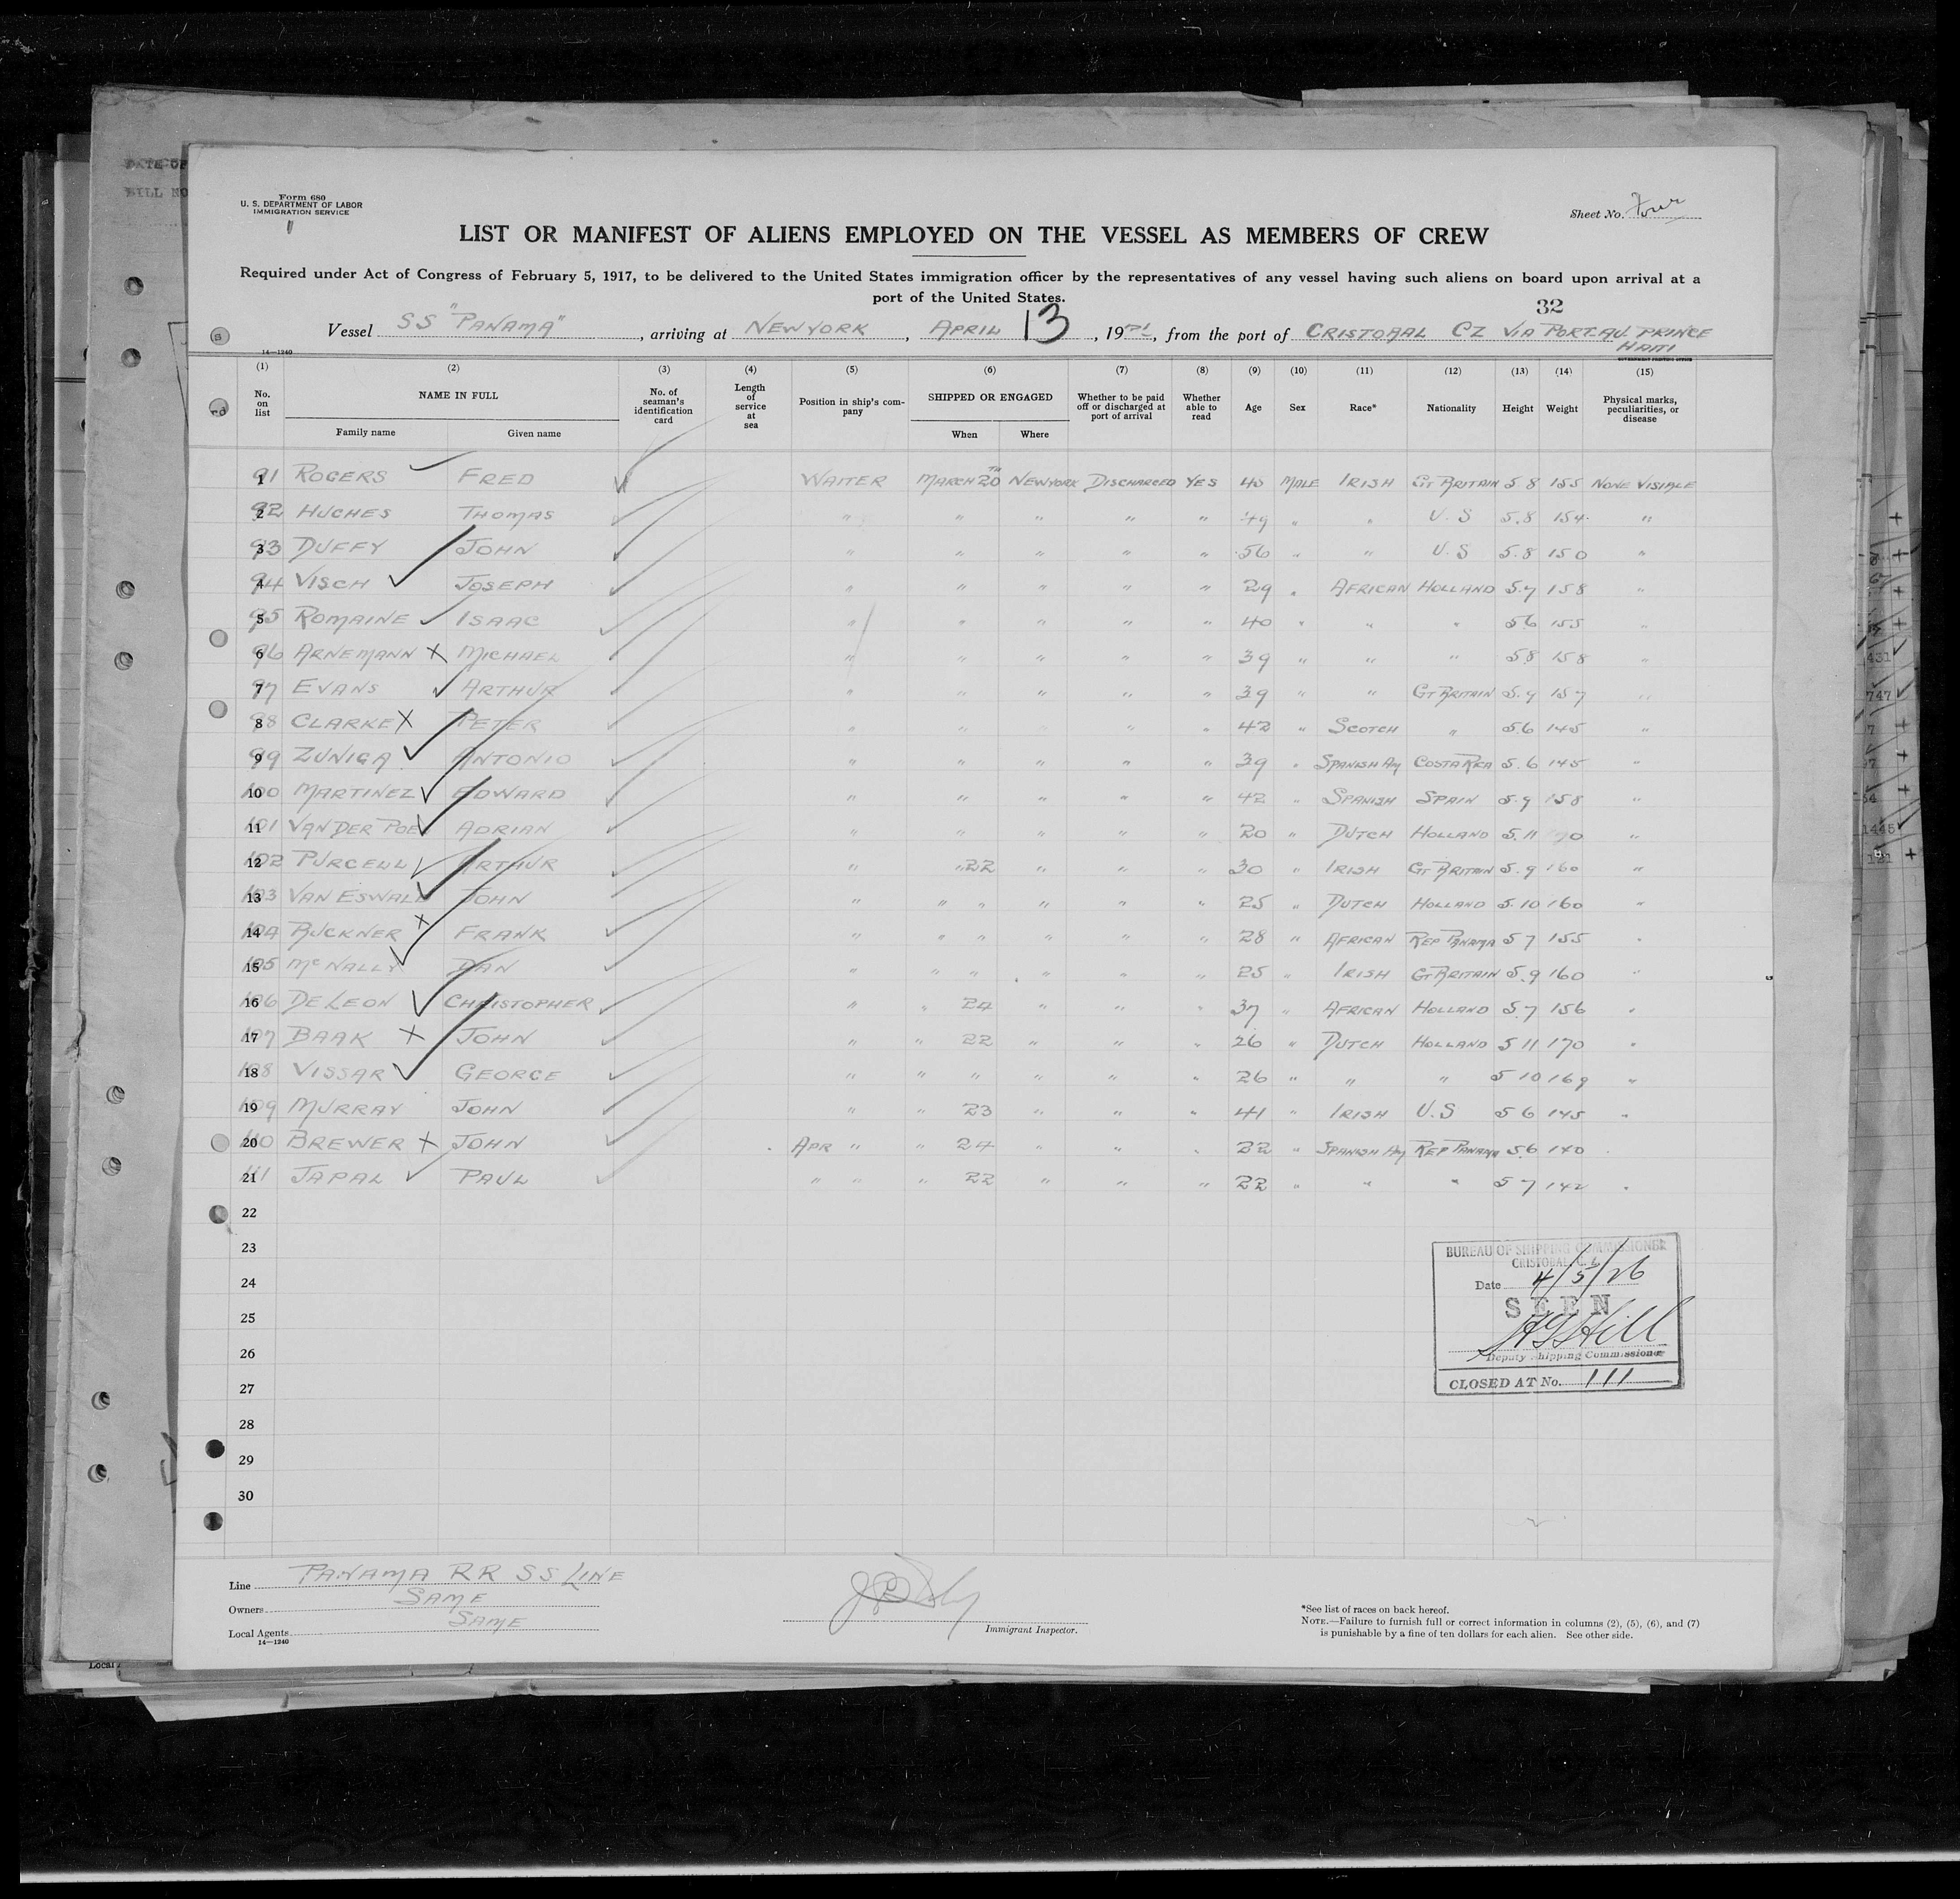 Form 680
U. S. DEPARTMENT OF LABOR
IMMIGRATION SERVICE
Sheet No. Four
LIST OR MANIFEST OF ALIENS EMPLOYED ON THE VESSEL AS MEMBERS OF CREW
Required under Act of Congress of February 5, 1917, to be delivered to the United States immigration officer by the representatives of any vessel having such aliens on board upon arrival at a
port of the United States.
32
Vessel SS "PANAMA", arriving at NEW YORK, APRIL 13, 19, from the port of CRISTOBAL CZ VIA PORT AU PRINCE
HAITI
14—1240
(1) (2) (3) (4) (5) (6) (7) (8) (9) (10) (11) (12) (13) (14) (15)
No. on list NAME IN FULL Family name Given name No. of seaman's identification card Length of service at sea Position in ship's company SHIPPED OR ENGAGED When Where Whether to be paid off or discharged at port of arrival Whether able to read Age Sex Race* Nationality Height Weight Physical marks, peculiarities, or disease
1 91 ROGERS FRED WAITER MARCH 20TH NEW YORK DISCHARGED YES 45 MALE IRISH GT BRITAIN 5 8 155 NONE VISIBLE
2 92 HUGHES THOMAS " " " " " 49 " " U.S 5.8 154 "
3 93 DUFFY JOHN " " " " " 56 " " U.S 5.8 150 "
4 94 VISCH JOSEPH " " " " " 29 " AFRICAN HOLLAND 5.7 158 "
5 95 ROMAINE ISAAC " " " " " 40 " " " 5 6 155 "
6 96 ARNEMANN MICHAEL " " " " " 39 " " " 5.8 158 "
7 97 EVANS ARTHUR " " " " " 39 " " GT BRITAIN 5.9 157 "
8 98 CLARKE PETER " " " " " 42 " SCOTCH " 5.6 145 "
9 99 ZUNIGA ANTONIO " " " " " 39 " SPANISH AM COSTA RICA 5.6 145 "
10 100 MARTINEZ EDWARD " " " " " 42 " SPANISH SPAIN 5.9 158 "
11 101 VAN DER POEL ADRIAN " " " " " 20 " DUTCH HOLLAND 5.11 "
12 102 PURCELL ARTHUR " " 22 " " " 30 " IRISH GT BRITAIN 5.9 160 "
13 103 VAN ESWALD JOHN " " " " " " 25 " DUTCH HOLLAND 5.10 160 "
14 104 BUCKNER FRANK " " " " " " 28 " AFRICAN REP PANAMA 5 7 155 "
15 105 McNALLY DAN " " " " " " 25 " IRISH GT BRITAIN 5.9 160 "
16 106 DE LEON CHRISTOPHER " " 24 " " " 37 " AFRICAN HOLLAND 5.7 156 "
17 107 BAAK JOHN " " 22 " " " 26 " DUTCH HOLLAND 5 11 170 "
18 108 VISSAR GEORGE " " " " " " 26 " " " 5 10 169 "
19 109 MURRAY JOHN " " 23 " " " 41 " IRISH U.S 5 6 145 "
20 110 BREWER JOHN APR " " 24 " " " 22 " SPANISH AM REP PANAMA 5.6 140
21 111 JAPAL PAUL " " " 22 " " " 22 " " " 5 7 142 "
22
23
24
25
26
27
28
29
30
BUREAU OF SHIPPING COMMISSIONER
CRISTOBAL, C. Z.
Date 4/5/26
SEEN
Hill
Deputy Shipping Commissioner
CLOSED AT No. 111
Line PANAMA RR SS LINE
Owners SAME
Local Agents SAME
14—1240
Immigrant Inspector.
*See list of races on back hereof.
NOTE.—Failure to furnish full or correct information in columns (2), (5), (6), and (7)
is punishable by a fine of ten dollars for each alien. See other side.